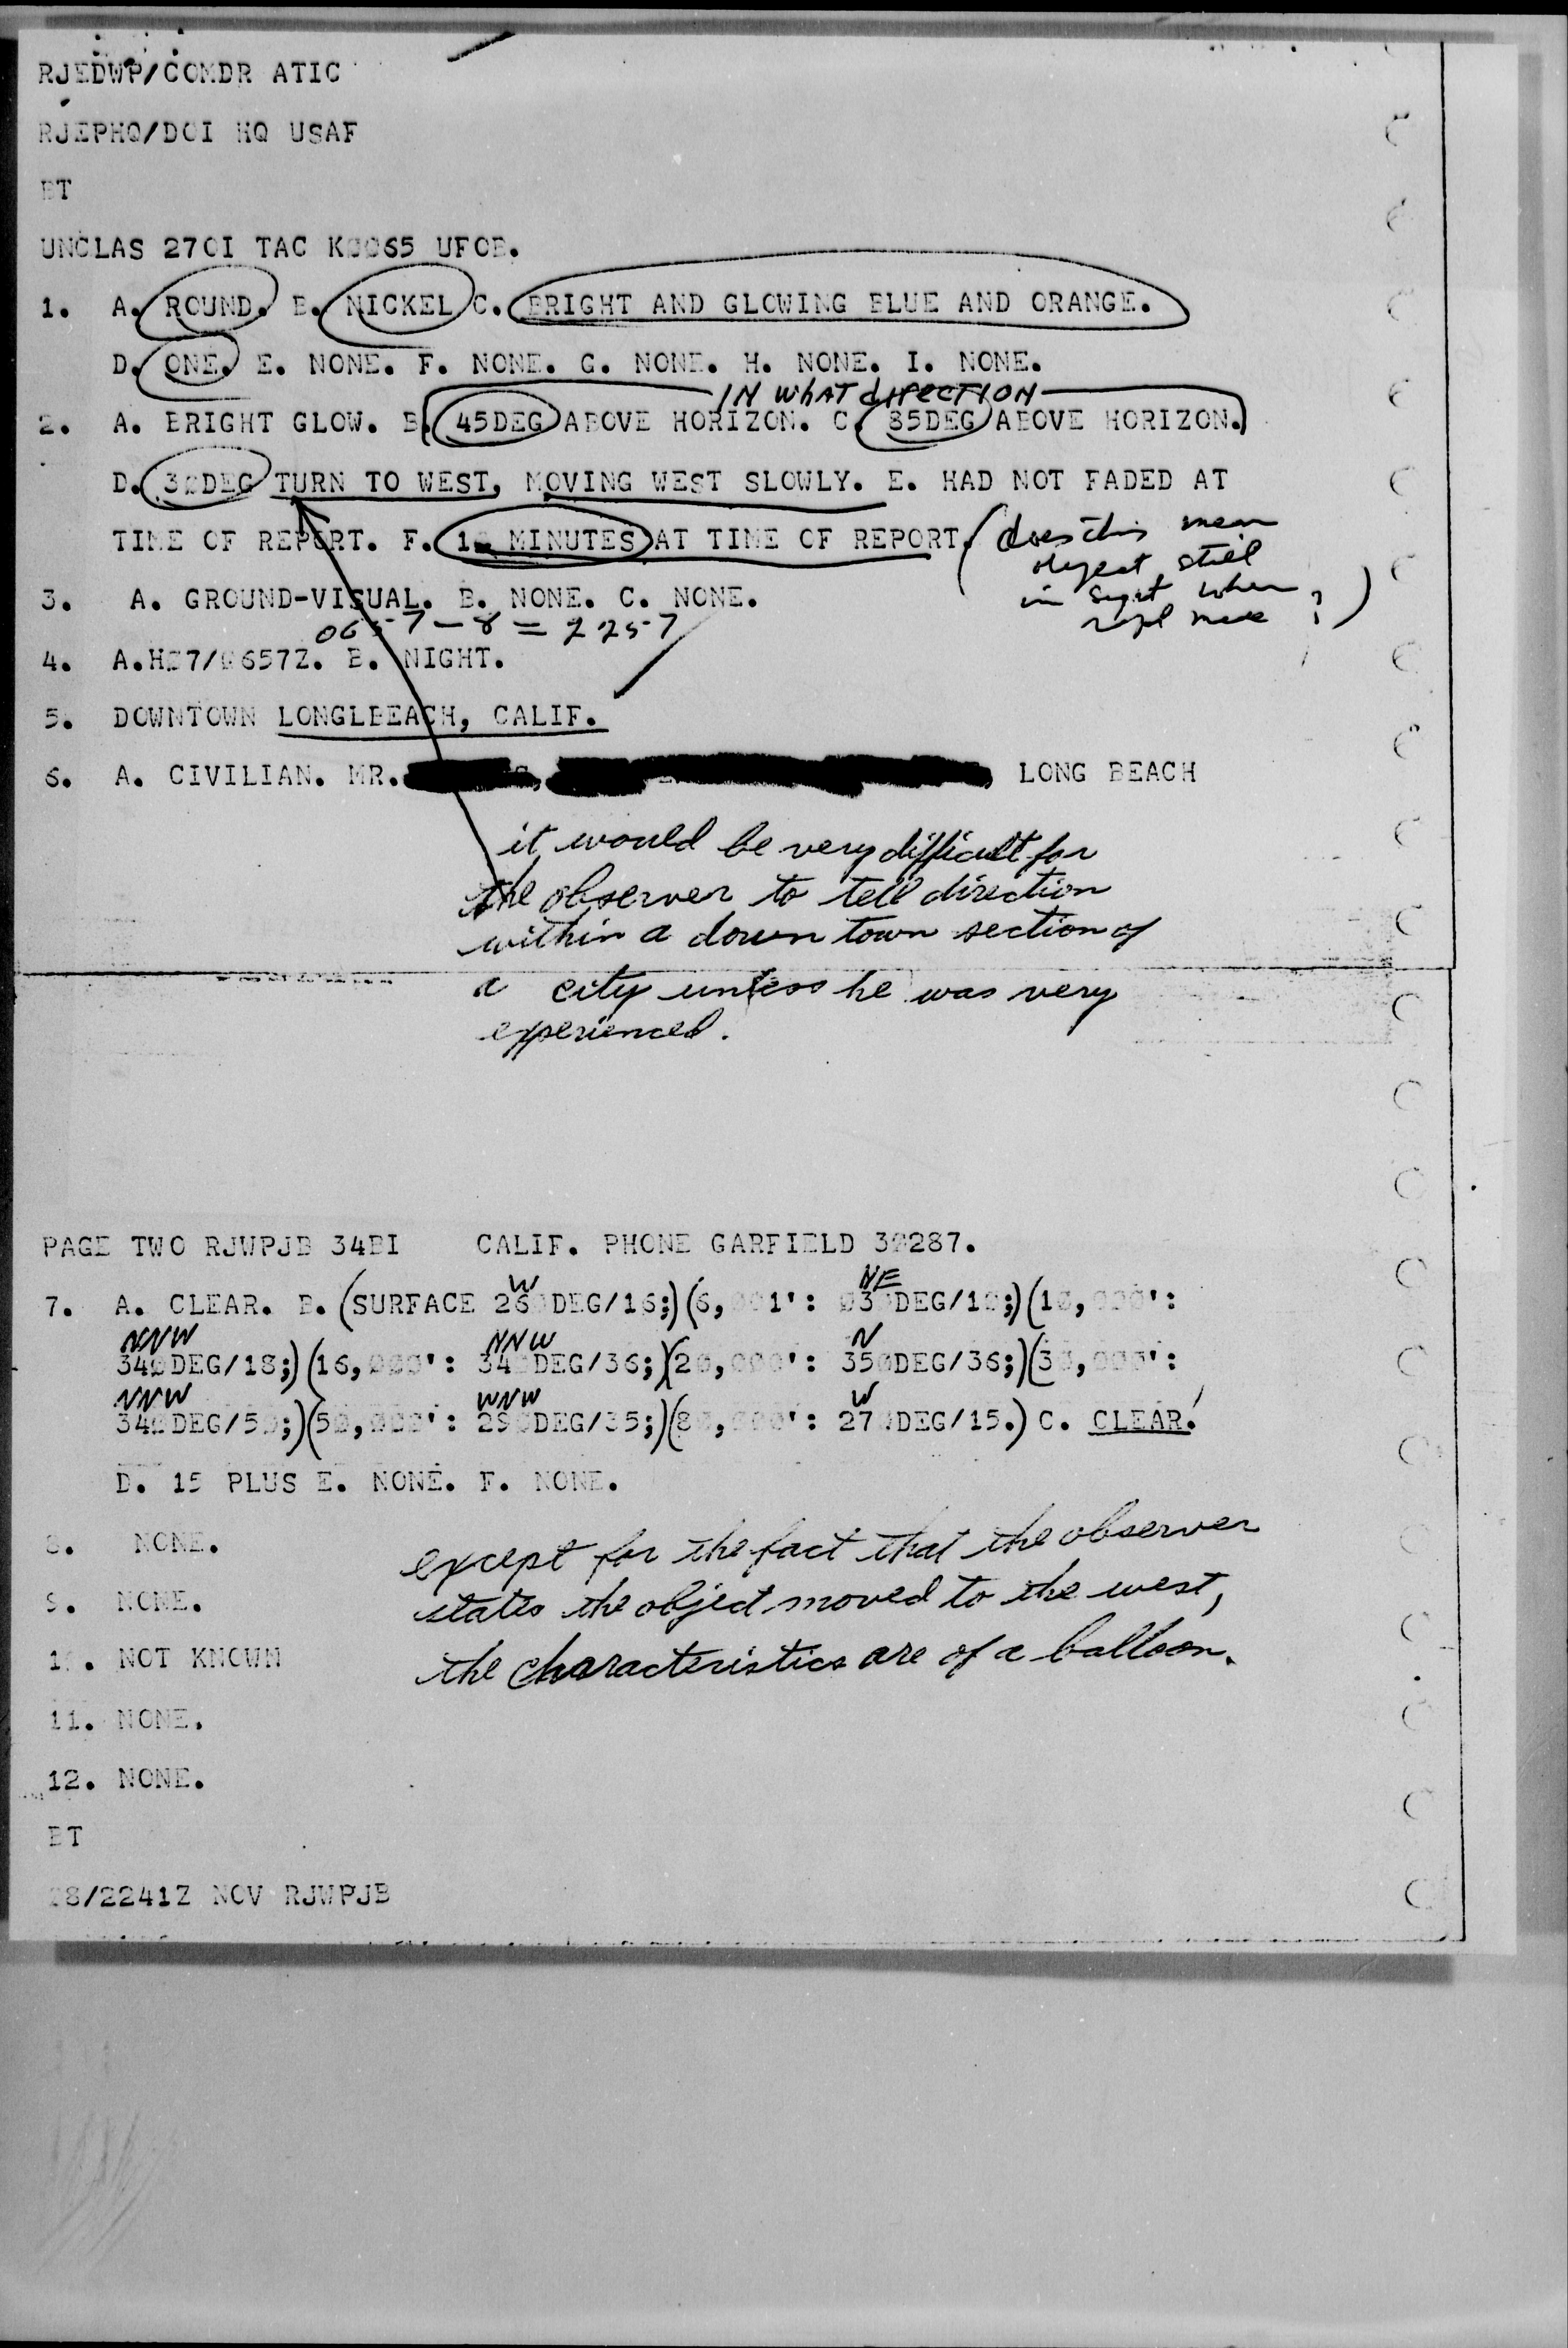 RJEDWP/COMDR ATIC
RJEPHQ/DCI HQ USAF
BT
UNCLAS 27OI TAC K0065 UFOB.
1. A. ROUND. B. NICKEL C. BRIGHT AND GLOWING BLUE AND ORANGE.
D. ONE. E. NONE. F. NONE. G. NONE. H. NONE. I. NONE.
IN WHAT dIRECTION
2. A. BRIGHT GLOW. B. 45DEG ABOVE HORIZON. C. 35DEG ABOVE HORIZON.
D. 30DEG TURN TO WEST, MOVING WEST SLOWLY. E. HAD NOT FADED AT
TIME OF REPORT. F. MINUTES AT TIME OF REPORT.
(does this mean
object still
in sight when
made ?)
3. A. GROUND-VISUAL. B. NONE. C. NONE.
0657-8 = 2257
4. A. 0657Z. B. NIGHT.
5. DOWNTOWN LONGLBEACH, CALIF.
6. A. CIVILIAN. MR. LONG BEACH
it would be very difficult for
the observer to tell direction
within a down town section of
a city unless he was very
experienced.
PAGE TWO RJWPJB 34BI CALIF. PHONE GARFIELD 30287.
W NE
7. A. CLEAR. B. (SURFACE 260DEG/16;) (6,001': 030DEG/10;) (10,000':
NNW NNW N
340DEG/18;) (16,000': 340DEG/36;) (20,000': 350DEG/36;) (30,000':
NNW WNW W
340DEG/50;) (50,000': 290DEG/35;) (80,000': 270DEG/15.) C. CLEAR.
D. 15 PLUS E. NONE. F. NONE.
8. NONE.
9. NONE.
10. NOT KNOWN
11. NONE.
12. NONE.
except for the fact that the observer
states the object moved to the west,
the characteristics are of a balloon.
BT
28/2241Z NOV RJWPJB